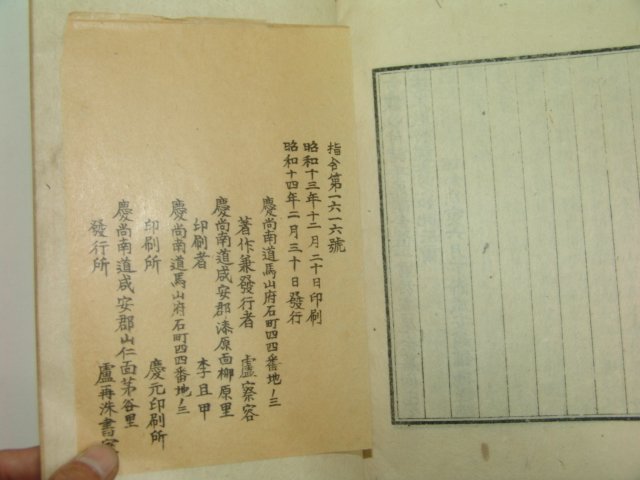 指令第一六一六號
昭和十三年十二月二十日印刷
昭和十四年二月三十日發行
慶尙南道馬山府石町四四番地ノ三
著作兼發行者 盧寀容
慶尙南道咸安郡漆原面柳原里
印刷者 李且甲
慶尙南道馬山府石町四四番地ノ三
印刷所 慶元印刷所
慶尙南道咸安郡山仁面茅谷里
發行所 盧再洙書室